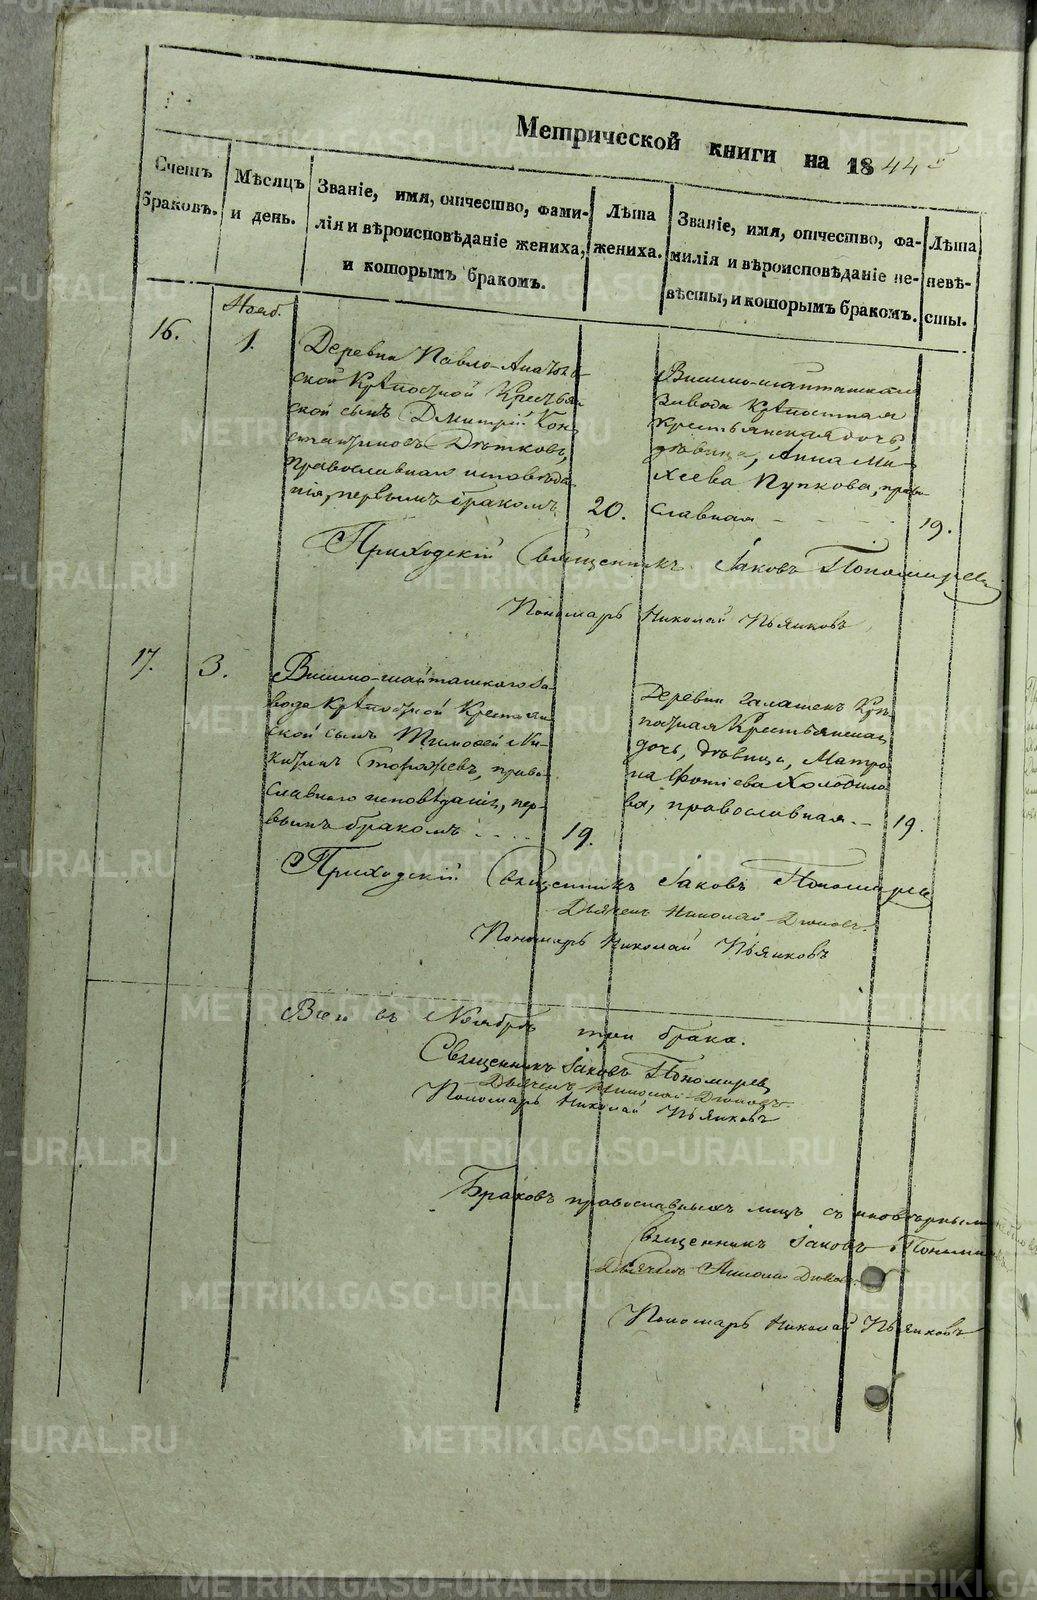 Метрической книги на 1844
Счетъ браковъ.
Мѣсяцъ и день.
Званіе, имя, отчество, фами-
лія и вѣроисповѣданіе жениха,
и которымъ бракомъ.
Лѣта
жениха.
Званіе, имя, отчество, фа-
милія и вѣроисповѣданіе не-
вѣсты, и которымъ бракомъ.
Лѣта
невѣ-
сты.
Нояб.
16.
1.
Деревни Павло-Анатоль-
ской крѣпостной крестьян-
ской сынъ Дмитрій Кон-
стантиновъ Дѣтковъ,
православнаго исповѣда-
нія, первымъ бракомъ
20.
Висимо-шайтанскаго
завода крѣпостная
крестьянская дочь,
дѣвица, Анна Ми-
хеева Пупкова, право-
славная
19.
Приходскій Священникъ Іаковъ Пономаревъ
Пономарь Николай Пьянковъ
17.
3.
Висимо-шайтанскаго за-
вода крѣпостной крестьян-
ской сынъ Тимофей Ни-
китинъ право-
славнаго исповѣданія, пер-
вымъ бракомъ
19.
Деревни Галашекъ крѣ-
постная крестьянская
дочь, дѣвица, Матро-
на Фотіева Холодило-
ва, православная.
19.
Приходскій Священникъ Іаковъ Пономаревъ
Дьячекъ Николай
Пономарь Николай Пьянковъ
Всего въ Ноябрѣ три брака.
Священникъ Іаковъ Пономаревъ
Дьячекъ Николай
Пономарь Николай Пьянковъ
Браковъ православныхъ лицъ съ иновѣрными
Священникъ Іаковъ Пономаревъ
Дьячекъ Николай
Пономарь Николай Пьянковъ
METRIKI.GASO-URAL.RU